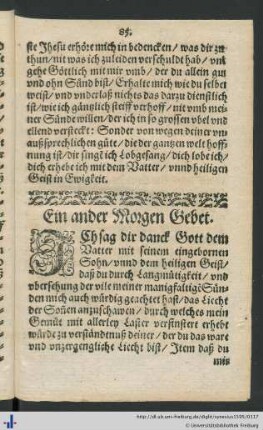 85.
ste Jhesu erhöre mich in bedencken/ was dir zu
thun/ nit was ich zuleiden verschuldt hab/ vnd
gehe Göttlich mit mir vmb/ der du allein gut
vnd ohn Sünd bist/ Erhalte mich wie du selber
weist/ vnd vnderlaß nichts das darzu dienstlich
ist/ wie ich gäntzlich steiff verhoff/ nit vmb mei-
ner Sünde willen/ der ich in so grossen vbel vnd
ellend versteckt: Sonder von wegen deiner vn
außsprechlichen güte/ die der gantzen welt hoff-
nung ist/ dir sing ich Lobgesang/ dich lobe ich/
dich erhebe ich mit dem Vatter/ vnnd heiligen
Geist in Ewigkeit.
Ein ander Morgen Gebet.
ICh sag dir danck Gott dem
Vatter mit seinem eingebornen
Sohn/ vnnd den heiligen Geist/
daß du durch Langmütigkeit/ vnd
vbersehung der vile meiner manigfaltigē Sün-
den mich auch würdig geachtet hast/ das Liecht
der Soñen anzuschawen/ durch welches mein
Gemüt mit allerley Laster verfinstert erhebt
würde zu verständenuß deiner/ der du das ware
vnd vnzergengliche Liecht bist/ Item daß du
mis
http://dl.ub.uni-freiburg.de/diglit/synesius1595/0117
© Universitätsbibliothek Freiburg